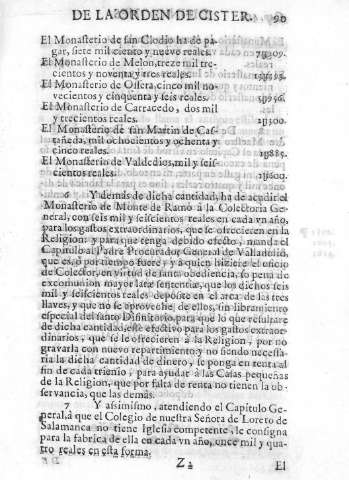 DE LA ORDEN DE CISTER. 90
El Monasterio de san Clodio ha de pa-
gar, siete mil ciento y nueve reales. 7y109.
El Monasterio de Melon, treze mil tre-
cientos y noventa y tres reales.
El Monasterio de Ossera, cinco mil no-
vecientos y cinquenta y seis reales. 5y956.
El Monasterio de Carracedo, dos mil
y trecientos reales.
El Monasterio de san Martin de Cas-
tañeda, mil ochocientos y ochenta y
cinco reales. 1y885.
El Monasterio de Valdedios, mil y seis-
cientos reales. 1y600.
6 Y demàs de dicha cantidad, ha de acudir el
Monasterio de Monte de Ramo à la Colectoria Ge-
neral, con seis mil y seiscientos reales en cada vn año,
para los gastos extraordinarios, que se ofrecieren en la
Religion: y para que tenga debido efecto, manda el
Capitulo al Padre Procurador General de Valladolid,
que es, ò por tiempo fuere, y à quien hiziere el oficio
de Colector, en virtud de santa obediencia, so pena de
excomunion mayor latæ sententiæ, que los dichos seis
mil y seiscientos reales deposite en el arca de las tres
llaves, y que no se aproveche de ellos, sin libramiento
especial del santo Difinitorio, para que lo que resultare
de dicha cantidad, estè efectivo para los gastos extraor-
dinarios, que se le ofrecieren à la Religion, por no
gravarla con nuevo repartimiento y no siendo necessa-
ria la dicha cantidad de dinero, se ponga en renta al
fin de cada trienio, para ayudar à las Casas pequeñas
de la Religion, que por falta de renta no tienen la ob-
servancia, que las demàs.
7 Y assimismo, atendiendo el Capitulo Ge-
neral, à que el Colegio de nuestra Señora de Loreto de
Salamanca no tiene Iglesia competente, le consigna
para la fabrica de ella en cada vn año, once mil y qua-
tro reales en esta forma.
Z 2 El